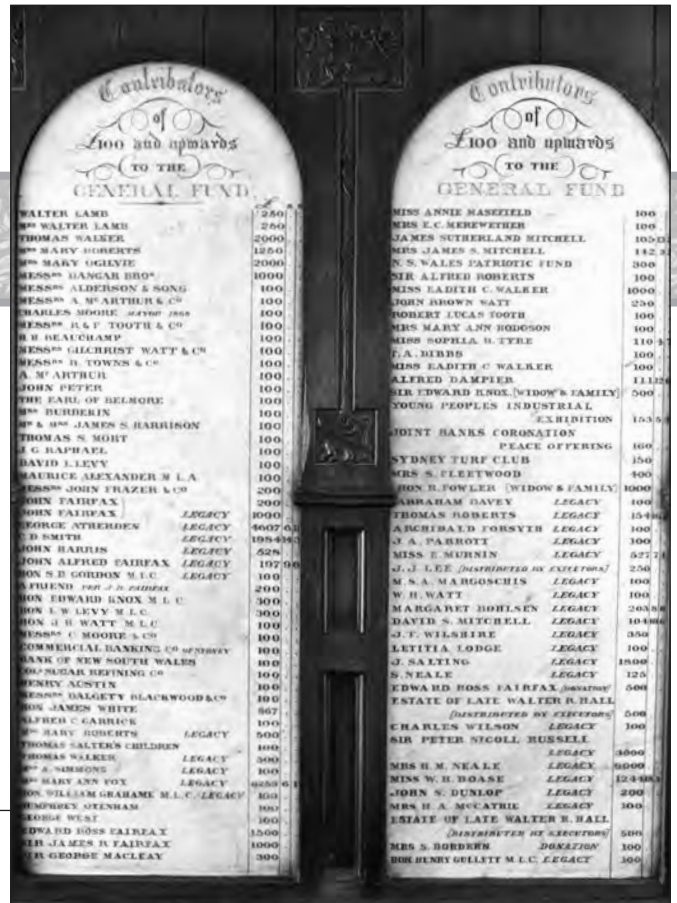 Contributors
of
£100 and upwards
TO THE
GENERAL FUND
WALTER LAMB 250
MRS WALTER LAMB 250
THOMAS WALKER 2000
MRS MARY ROBERTS 1250
MRS MARY OGILVIE 2000
MESSRS DANGAR BROS 1000
MESSRS ALDERSON & SONS 100
MESSRS A. MCARTHUR & CO 100
CHARLES MOORE MAYOR 1868 100
MESSRS R & F TOOTH & CO 100
H. H. BEAUCHAMP 100
MESSRS GILCHRIST WATT & CO 100
MESSRS R. TOWNS & CO 100
A. MCARTHUR 100
JOHN PETER 100
THE EARL OF BELMORE 100
MRS BURDEKIN 100
MR & MRS JAMES S. HARRISON 100
THOMAS S. MORT 100
J. G RAPHAEL 100
DAVID L LEVY 100
MAURICE ALEXANDER M L A 100
MESSRS JOHN FRAZER & CO 200
JOHN FAIRFAX 200
JOHN FAIRFAX LEGACY 1000
GEORGE ATHERDEN LEGACY 4607
C D SMITH LEGACY 1984
JOHN HARRIS LEGACY 528
JOHN ALFRED FAIRFAX LEGACY 197
HON S. D. GORDON M.L.C 100
A FRIEND PER J. R. FAIRFAX 200
HON EDWARD KNOX M L C 300
HON L W LEVY M L C 300
HON J. B. WATT M L C 100
MESSRS C MOORE & CO 100
COMMERCIAL BANKING CO OF SYDNEY 100
BANK OF NEW SOUTH WALES 100
COL SUGAR REFINING CO 100
HENRY AUSTIN 100
MESSRS DALGETY BLACKWOOD & CO 100
HON JAMES WHITE 567
ALFRED C GARRICK 100
MRS MARY ROBERTS LEGACY 500
THOMAS SALTER'S CHILDREN 100
THOMAS WALKER LEGACY 500
MRS A. SIMMONS LEGACY 100
MRS MARY ANN FOX LEGACY
HON. WILLIAM GRAHAME M.L.C. LEGACY 100
HUMPHREY OXENHAM 100
GEORGE WEST 100
EDWARD ROSS FAIRFAX 1500
SIR JAMES R FAIRFAX 1000
SIR GEORGE MACLEAY 300
Contributors
of
£100 and upwards
TO THE
GENERAL FUND
MISS ANNIE MASEFIELD 100
MRS E. C. MEREWETHER 100
JAMES SUTHERLAND MITCHELL 105
MRS JAMES S. MITCHELL 142
N. S. WALES PATRIOTIC FUND 300
SIR ALFRED ROBERTS 100
MISS EADITH C. WALKER 1000
JOHN BROWN WATT 250
ROBERT LUCAS TOOTH 100
MRS MARY ANN HODGSON 100
MISS SOPHIA B. TYRE 110
T. A. DIBBS 100
MISS EADITH C WALKER 100
ALFRED DAMPIER 111
SIR EDWARD KNOX. [WIDOW & FAMILY] 500
YOUNG PEOPLES INDUSTRIAL
EXHIBITION 153
JOINT BANKS CORONATION
PEACE OFFERING 160
SYDNEY TURF CLUB 150
MRS S. FLEETWOOD 400
HON R. FOWLER [WIDOW & FAMILY] 1000
ABRAHAM DAVEY LEGACY 100
THOMAS ROBERTS LEGACY 154
ARCHIBALD FORSYTH LEGACY 100
J. A. PARROTT LEGACY 100
MISS E. MURNIN LEGACY 527
J. J. LEE [DISTRIBUTED BY EXECUTORS] 250
M. S. A. MARGOSCHIS LEGACY 100
W. H. WATT LEGACY 100
MARGARET BOHLSEN LEGACY 205
DAVID S. MITCHELL LEGACY 104
J. T. WILSHIRE LEGACY 350
LETITIA LODGE LEGACY 100
J. SALTING LEGACY 1800
S. NEALE LEGACY 125
EDWARD ROSS FAIRFAX [DONATION] 500
ESTATE OF LATE WALTER R. HALL
[DISTRIBUTED BY EXECUTORS] 500
CHARLES WILSON LEGACY 100
SIR PETER NICOLL RUSSELL
LEGACY 3000
MRS H. M. NEALE LEGACY 6000
MISS W. H. BOASE LEGACY 1244
JOHN S. DUNLOP LEGACY 200
MRS H. A. MCCATHIE LEGACY 100
ESTATE OF LATE WALTER R. HALL
[DISTRIBUTED BY EXECUTORS] 500
MRS S. HORDERN DONATION 100
HON HENRY GULLETT M.L.C. LEGACY 100